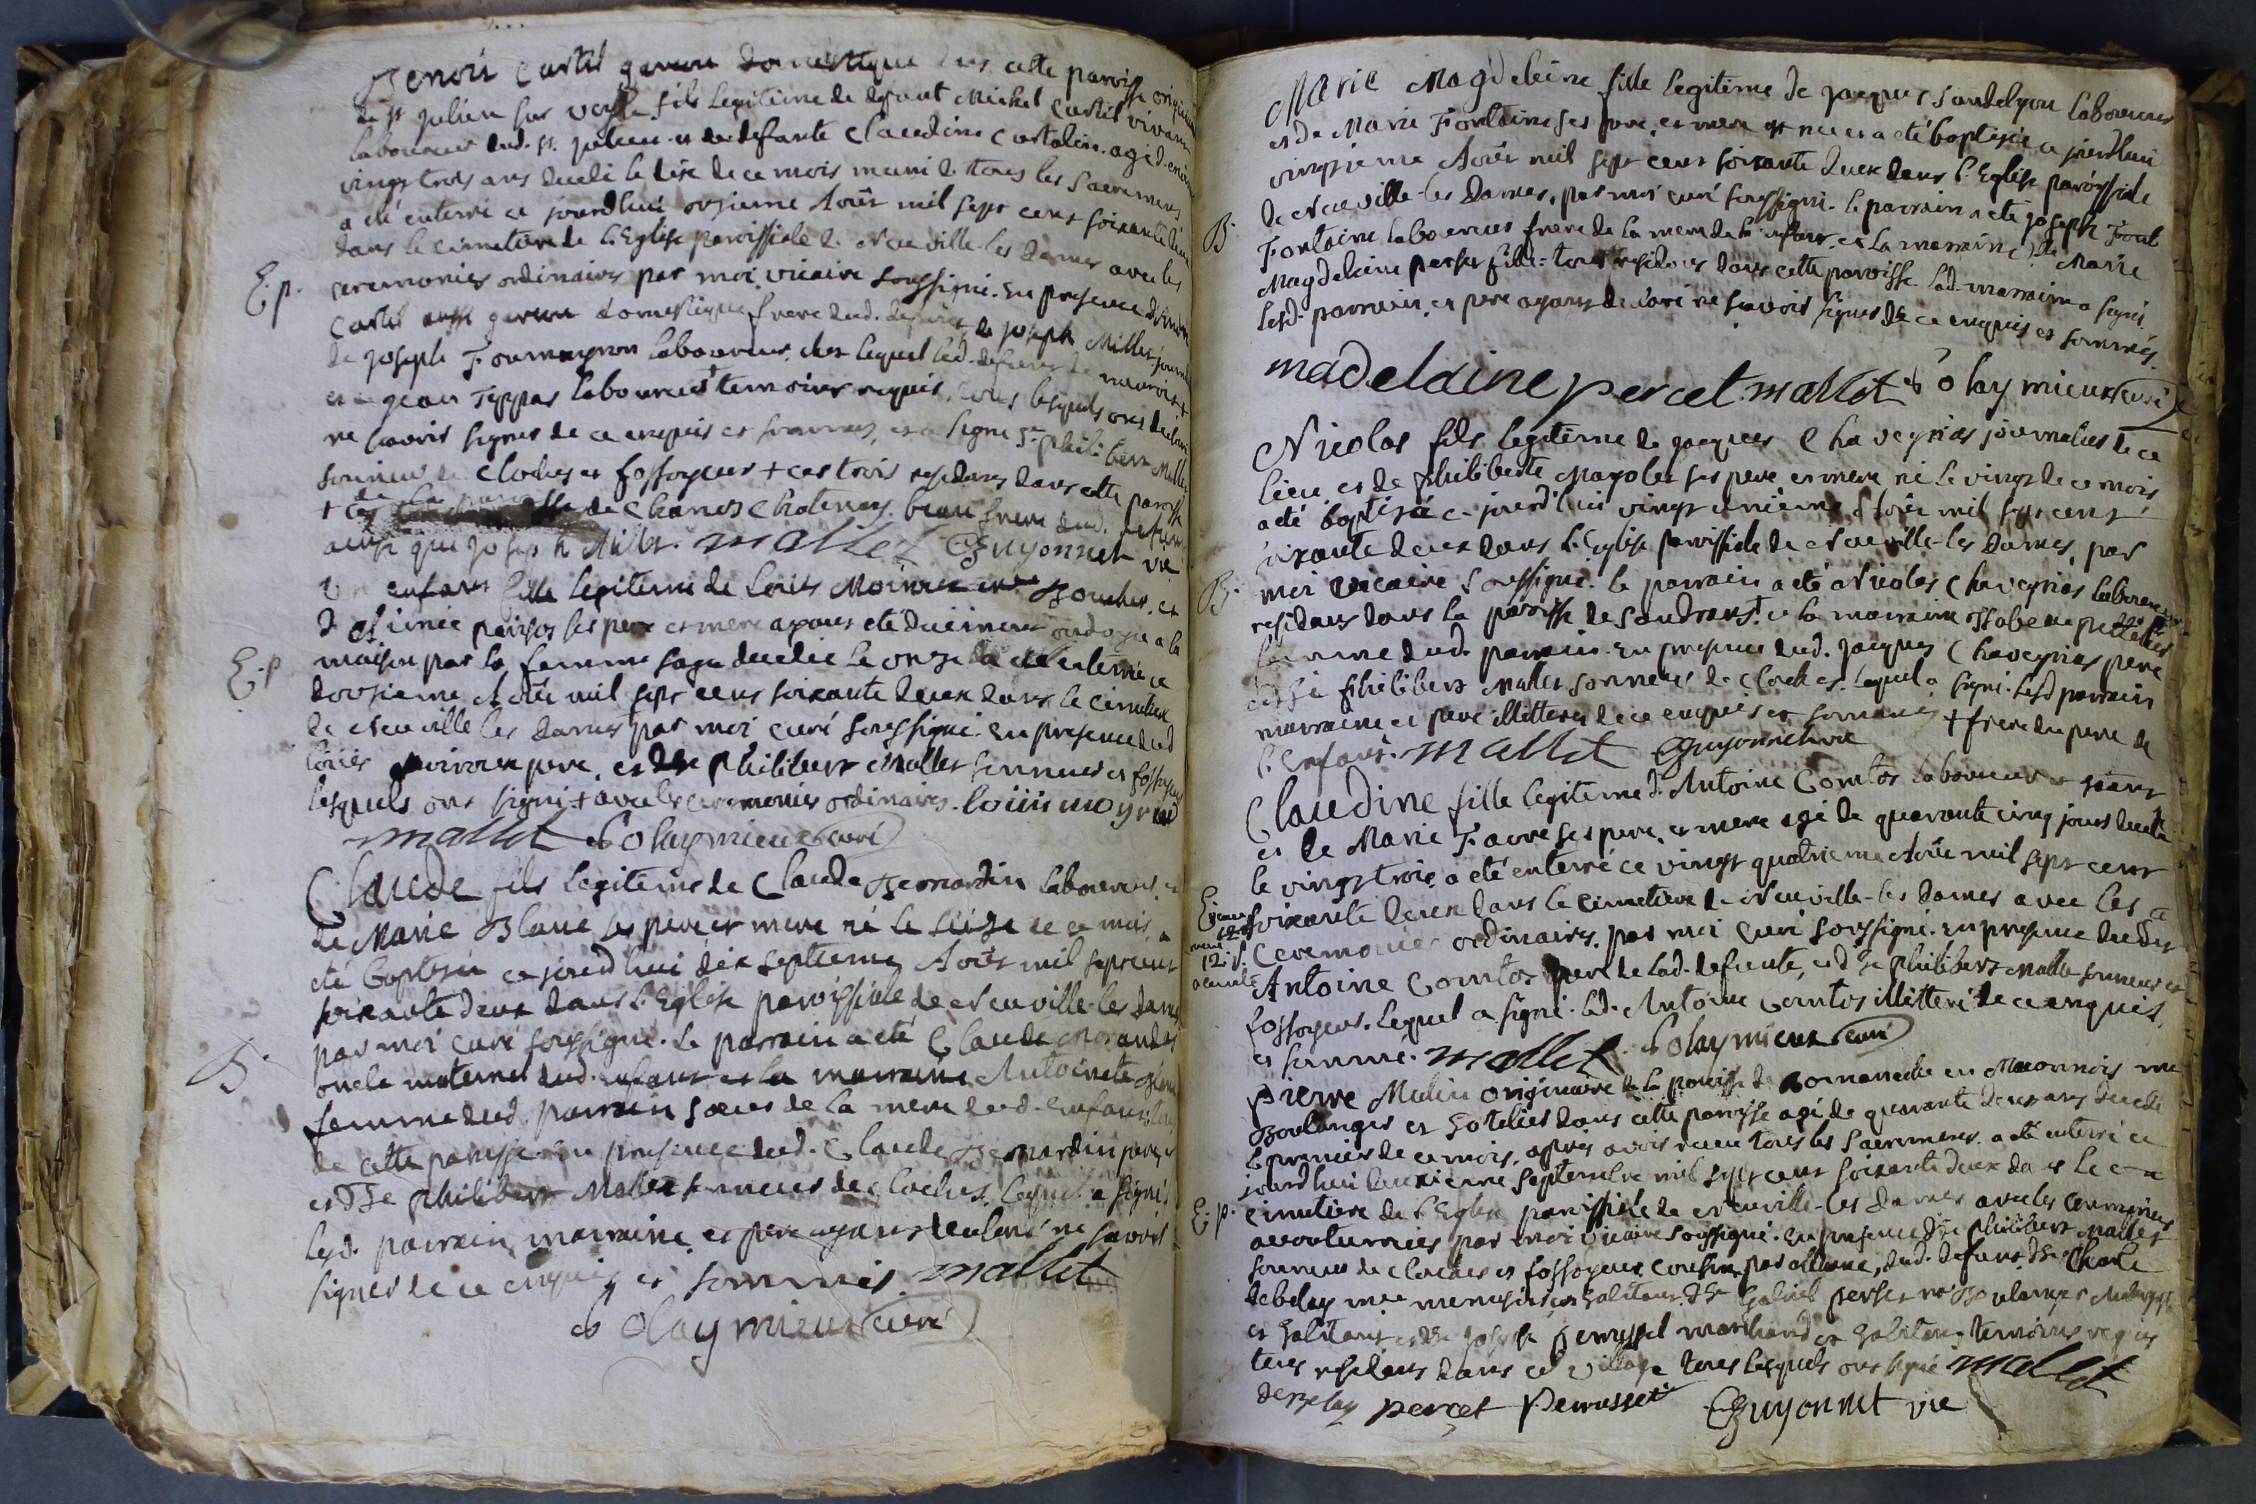 Benoit Cartil garcon domestique dans cette paroisse originaire
de st julien sur veyle fils legitime de defunt Michel Cartil vivant
laboureur dud. st. julien et de defunte Claudine Castalin agé d'environ
vingt trois ans decedé le dix de ce mois muni de tous les sacremens
a eté enterré ce jourdhui onzieme Août mil sept cent soixante deux
dans le cimetiere de l'Eglise paroissiale de Neuville les dames avec les
E.p.
ceremonies ordinaires par moi vicaire soussigné. en presence
Cartil aussi garcon domestique frere dud. defunt, de joseph Millet
de joseph Fournayron laboureur, chez lequel led. defunt demeuroit
et jean Teppas laboureur + temoins requis, tous lesquels ont declaré
ne savoir signer de ce enquis et sommés, et a signé sr philibert Mallet
sonneur de cloches et fossoyeur + ces trois residants dans cette paroisse
+ de la paroisse de Chanoz Chatenay beau frere dud. defunt
ainsi que joseph Millet. mallet Guyonnet vic
Un enfant fille legitime de Louis Moiroux Boucher et
d'Aimée ses pere et mere ayant eté duement ondoyé a la
E.p
maison par la femme sage decedé le onze a eté enterré ce
douzieme Août mil sept cens soixante deux dans le cimetiere
de Neuville les dames par moi curé soussigné. en presence dud
louis moiroux pere, et de sr philibert Mallet sonneur et fossoyeur
lesquels ont signé + avec les ceremonies ordinaires. louis moyrud
mallet Solaymieux curé
Claude fils legitime de Claude Bernardin laboureur, et
de Marie Blanc ses pere et mere né le seize de ce mois, a
eté baptisé ce jourd'hui dix septieme Août mil sept cent
soixante deux dans l'Eglise paroissiale de Neuville-les dames
par moi curé soussigné. Le parrain a eté Claude Morandas
B.
oncle maternel dud. enfant et la marraine Antoinete Blanc
femme dud. parrain soeur de la mere dud. enfant tous
de cette paroisse en presence dud. Claude Bernardin pere,
et de sr philibert Mallet sonneur de cloches, lequel a signé
lesd. parrain, marraine, et pere ayant declaré ne savoir
signer de ce enquis et sommés. mallet
Solaymieux curé
Marie Magdeleine fille legitime de jacques Sandelyon laboureur
et de Marie Fontaine ses pere, et mere est née et a eté baptisée ce jourdhui
vingtieme Août mil sept cent soixante deux dans l'Eglise paroissiale
de Neuville-les dames, par moi curé soussigné. le parrain a eté joseph Font
B.
Fontaine laboureur frere de la mere de l'enfant, et la marraine Marie
Magdeleine perset fille tous residans dans cette paroisse. lad. marraine a signé
lesd. parrain, et pere ayant declaré ne savoir signer de ce enquis et sommés.
madelaine percet. mallet Solaymieux curé
Nicolas fils legitime de jacques Chaveyrias journalier de ce
lieu et de philiberte Mayolet ses pere et mere né le vingt de ce mois
a eté baptisé ce jourd'hui vingt unieme Août mil sept cent
soixante deux dans l'Eglise paroissiale de Neuville-les dames, par
B.
moi vicaire soussigné. le parrain a eté Nicolas Chaveyrias laboureur
residant dans la paroisse de Sandrans + et la marraine
femme dud. parrain. en presence dud. jacques Chaveyrias pere
et de sr philibert mallet sonneur de cloches, lequel a signé. lesd parrain
marraine et pere illitteres de ce enquis et sommés + frere du pere de
l'enfant. mallet Guyonnet vic
Claudine fille legitime d'Antoine Comtos laboureur
et de Marie Favre ses pere, et mere agé de quarante cinq jours decedé
le vingt trois, a eté enterré ce vingt quatrieme Août mil sept cent
soixante deux dans le cimetiere de Neuville-les dames avec les
ceremonies ordinaires, par moi curé soussigné. en presence dud
Antoine Comtos pere de lad. defunte, et de sr philibert mallet sonneur et
fossoyeur, lequel a signé. led. Antoine Comtos illitteré de ce enquis,
et sommé. mallet Solaymieux curé
Pierre Mulin originaire de la paroisse de Romaneche en Maconnois me
Boulanger et hotelier dans cette paroisse agé de quarante deux ans decedé
le premier de ce mois, apres avoir recu tous les sacremens. a eté enterré ce
jourd'hui deuxieme septembre mil sept cent soixante deux dans le
E.p.
cimetiere de l'Eglise paroissiale de Neuville-les dames avec les ceremonies
accoutumées par moi vicaire soussigné. en presence de sr philibert mallet
sonneur de cloches et fossoyeur cousin par alliance, dud. defunt, de sr Charle
debelay me menuisier habitant, de sr Gabriel perset me Boulanger
et habitant et de sr joseph Perrussel marchand et habitant, temoins requis
tous residans dans ce village tous lesquels ont signé mallet
debelay percet Perrusset Guyonnet vic